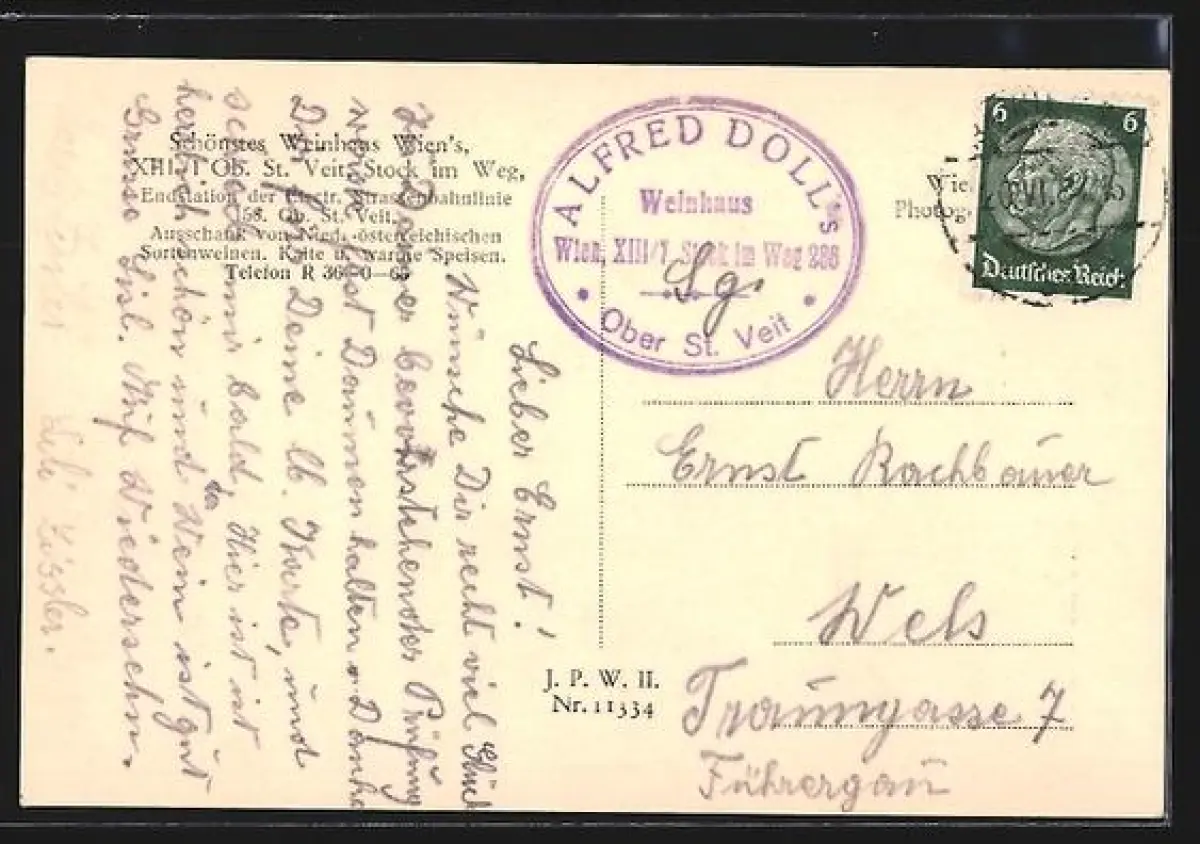 Schönstes Weinhaus Wien's,
XIII/1 Ob. St. Veit, Stock im Weg,
Endstation der Electr. Strassenbahnlinie
158. Ob. St. Veit.
Ausschank von Nied.-österreichischen
Sortenweinen. Kalte u. warme Speisen.
Telefon R 36-0-65
ALFRED DOLL's
Weinhaus
Wien, XIII/1, Stock im Weg 286
Ober St. Veit
Sg.
6 6
Deutsches Reich
Photog.
Herrn
Ernst Rachbauer
Wels
Traungasse 7
Führergau
J. P. W. II.
Nr. 11334
Lieber Ernst!
Wünsche Dir recht viel Glück
zu Deiner bevorstehenden Prüfung
werde fest Daumen halten. Danke
Dir für Deine lb. Karte, und
schreibe mir bald. Hier ist ist
herrlich schön und der Wein ist gut
Grüsse Lisl. Auf Wiedersehn.